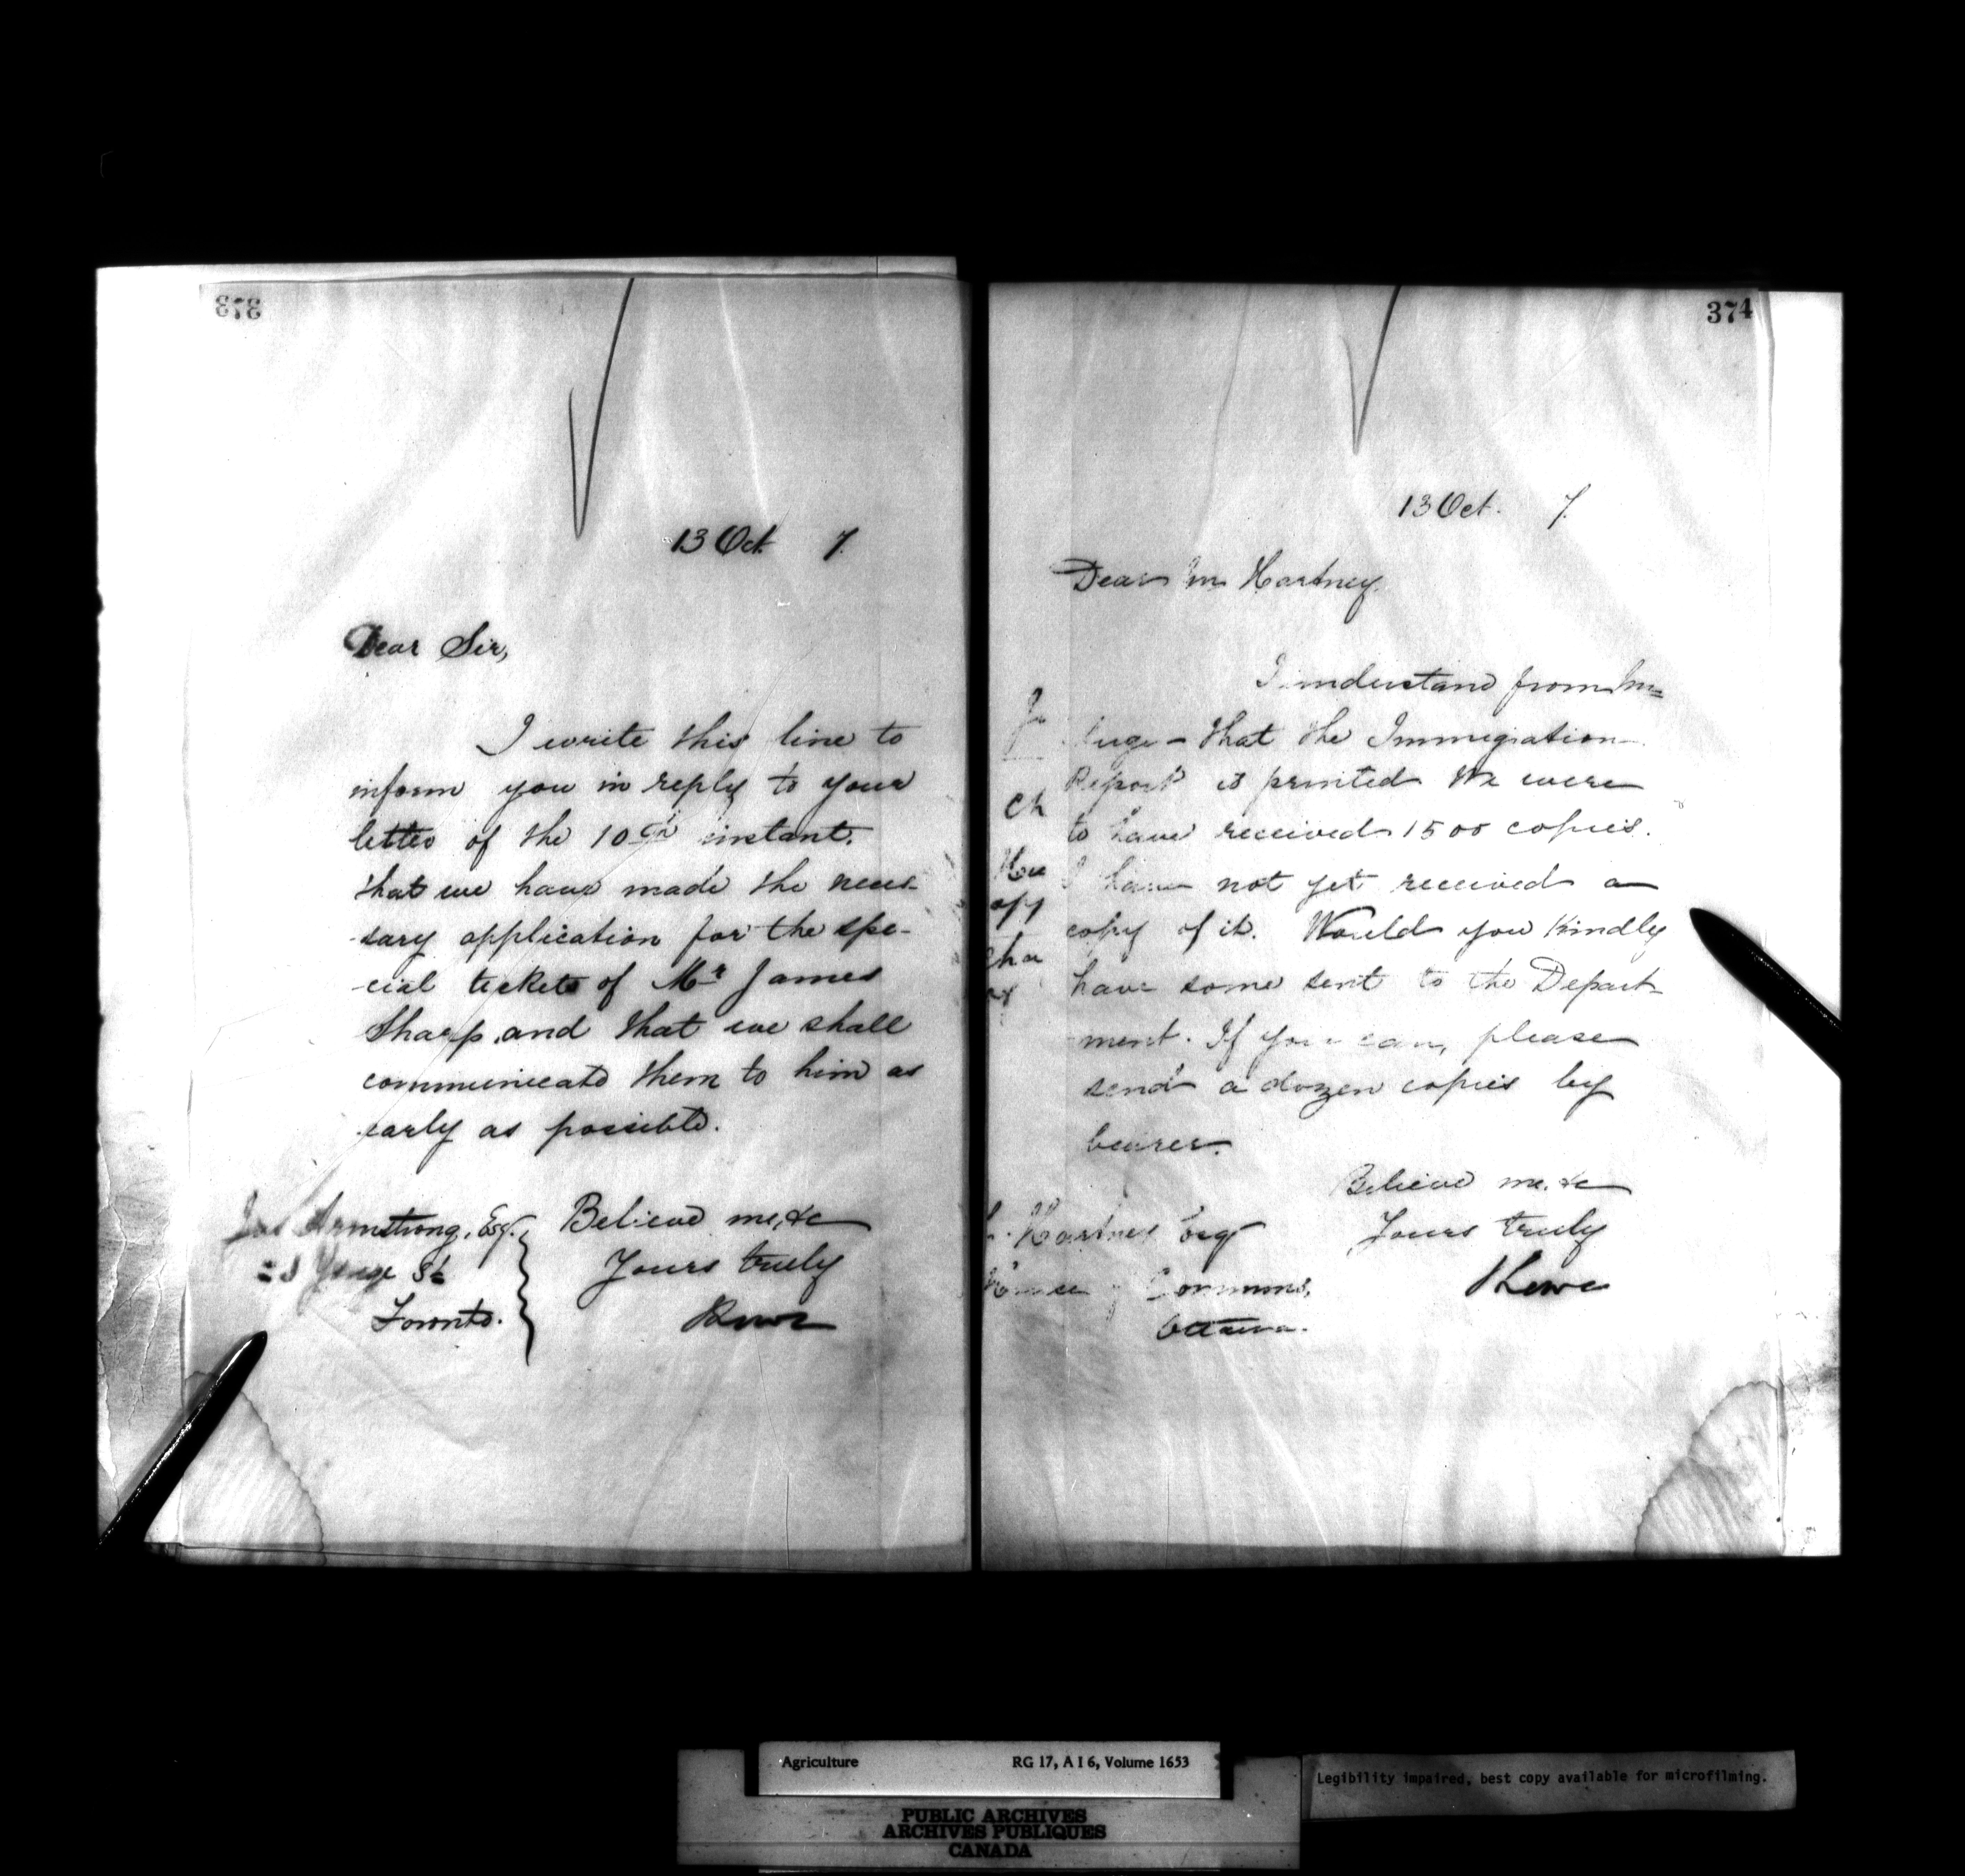 373
13 Oct 7.
Dear Sir,
I write this line to
inform you in reply to your
letter of the 10th instant.
that we have made the neces-
-sary application for the spe-
-cial tickets of Mr James
Sharp, and that we shall
communicate them to him as
early as possible.
Believe me, &c
Yours truly
Jas Armstrong, Esq.
Yonge St
Toronto.
374
13 Oct. 7.
Dear Mr Hartney.
I understand from Mr
that the Immigration
Report is printed We were
to have received 1500 copies.
I have not yet received a
copy of it. Would you kindly
have some sent to the Depart-
ment. If you can, please
send a dozen copies by
bearer.
Believe me, &c
Yours truly
JLowe
Hartney Esq
House of Commons,
Ottawa.
Ch
Agriculture RG 17, A I 6, Volume 1653
Legibility impaired, best copy available for microfilming.
PUBLIC ARCHIVES
ARCHIVES PUBLIQUES
CANADA